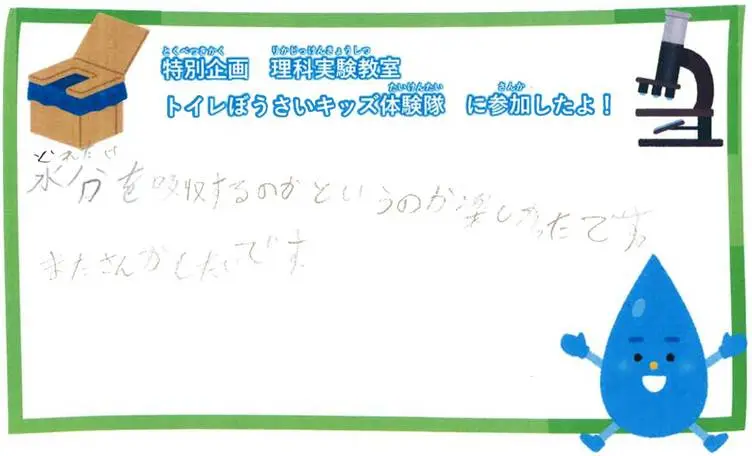 とくべつきかく りかじっけんきょうしつ
特別企画 理科実験教室
たいけんたい さんか
トイレぼうさいキッズ体験隊 に参加したよ！
どれだけ
水分を吸収するのかというのが楽しかったです。
またさんかしたいです